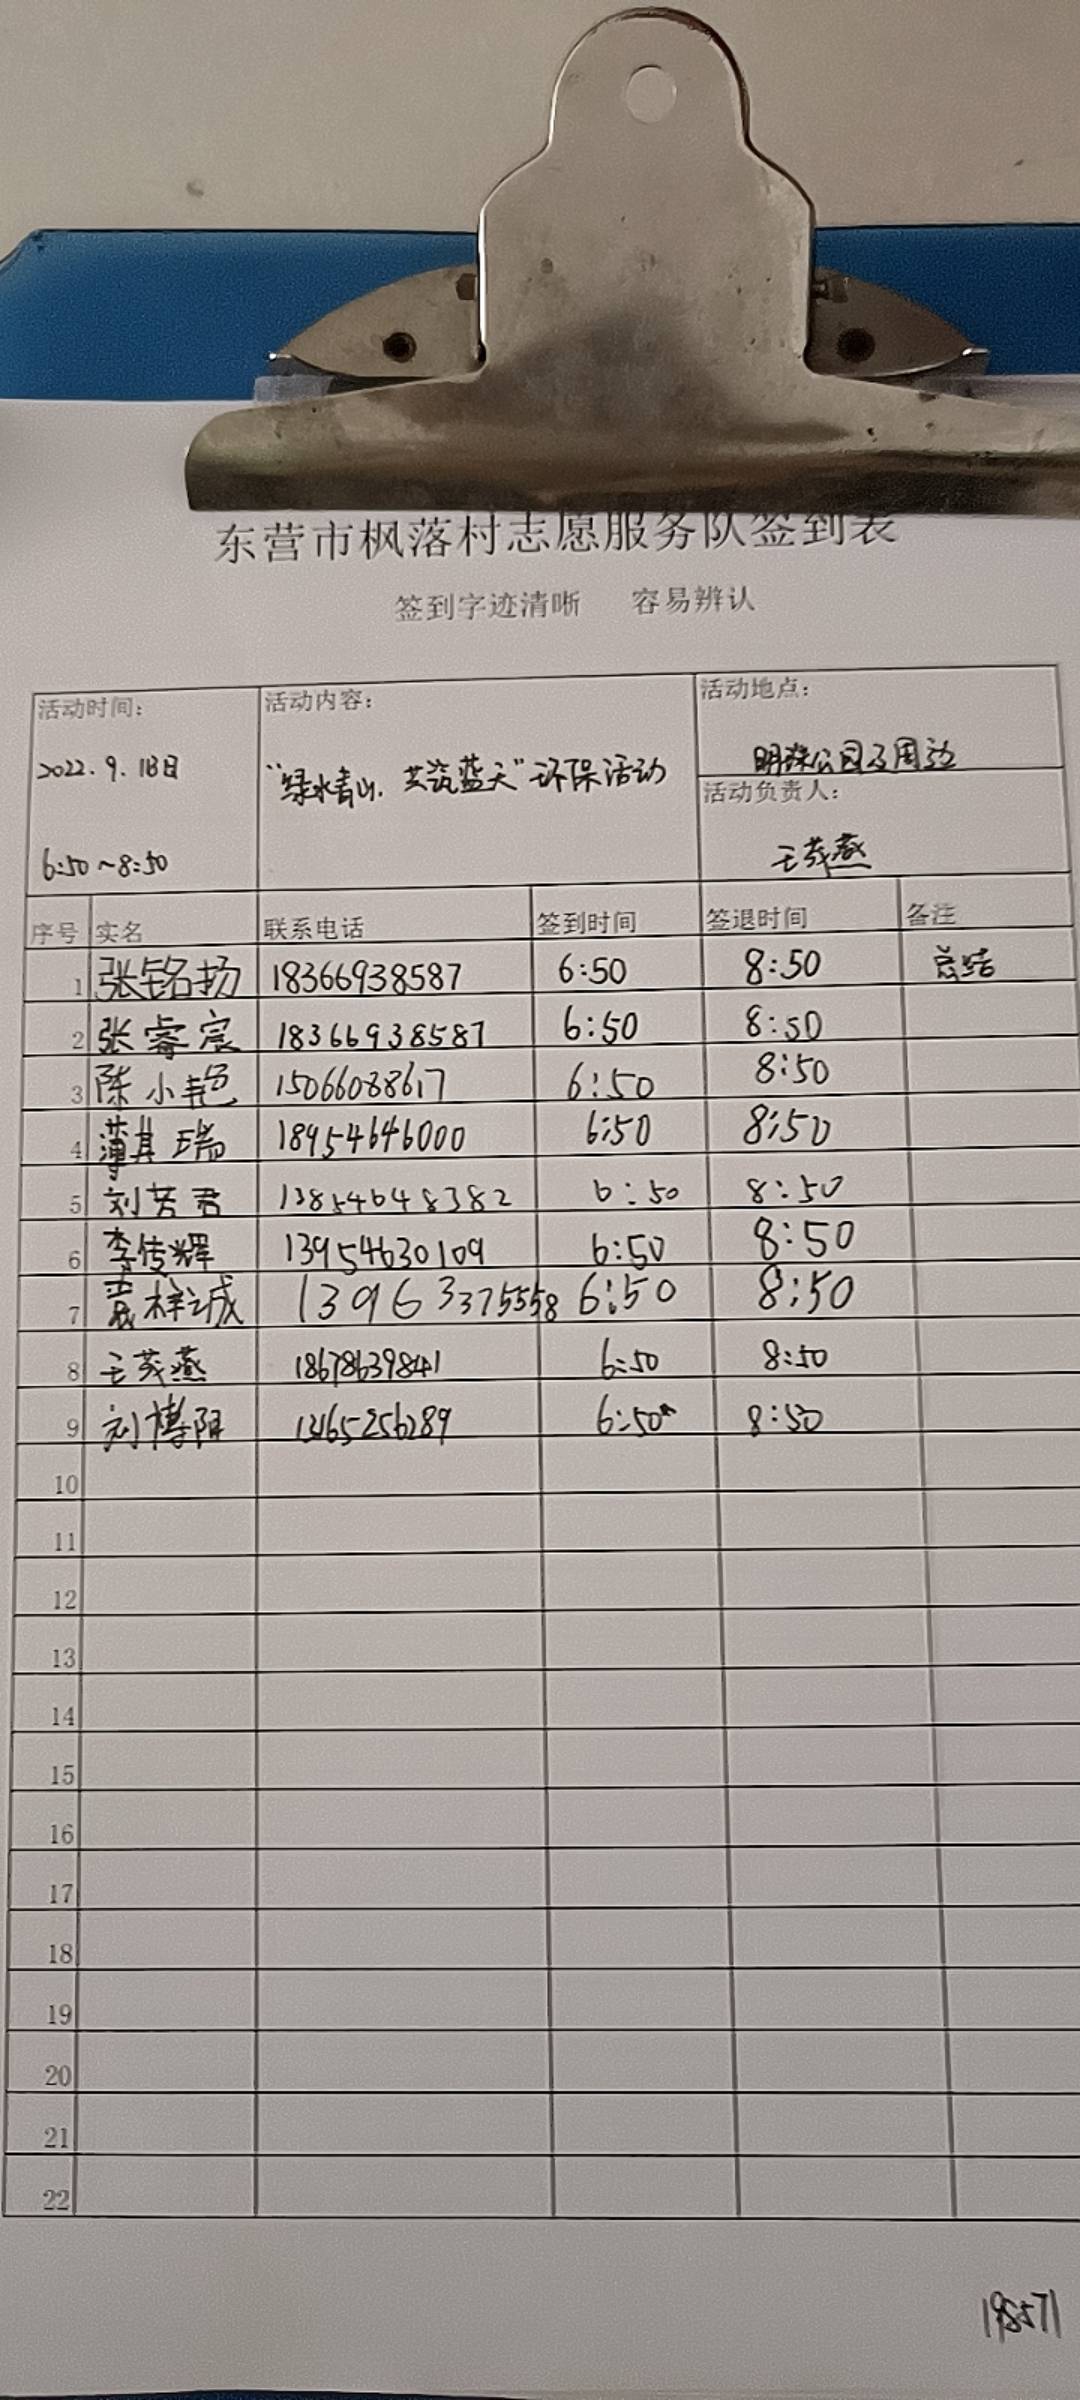 东营市枫落村志愿服务队签到表
签到字迹清晰 容易辨认
活动时间: 活动内容: 活动地点:
2022.9.18日 “绿水青山.共筑蓝天”环保活动 明珠公园及周边
活动负责人:
6:50~8:50 王茂燕
序号 实名 联系电话 签到时间 签退时间 备注
1 张铭扬 18366938587 6:50 8:50 总结
2 张睿宸 18366938587 6:50 8:50
3 陈小艳 15066088617 6:50 8:50
4 薄其瑞 18954646000 6:50 8:50
5 刘芳君 13854648382 6:50 8:50
6 李传辉 13954630109 6:50 8:50
7 袁梓诚 139633375558 6:50 8:50
8 王茂燕 18678639841 6:50 8:50
9 刘博阳 13165256289 6:50 8:50
10
11
12
13
14
15
16
17
18
19
20
21
22
198571